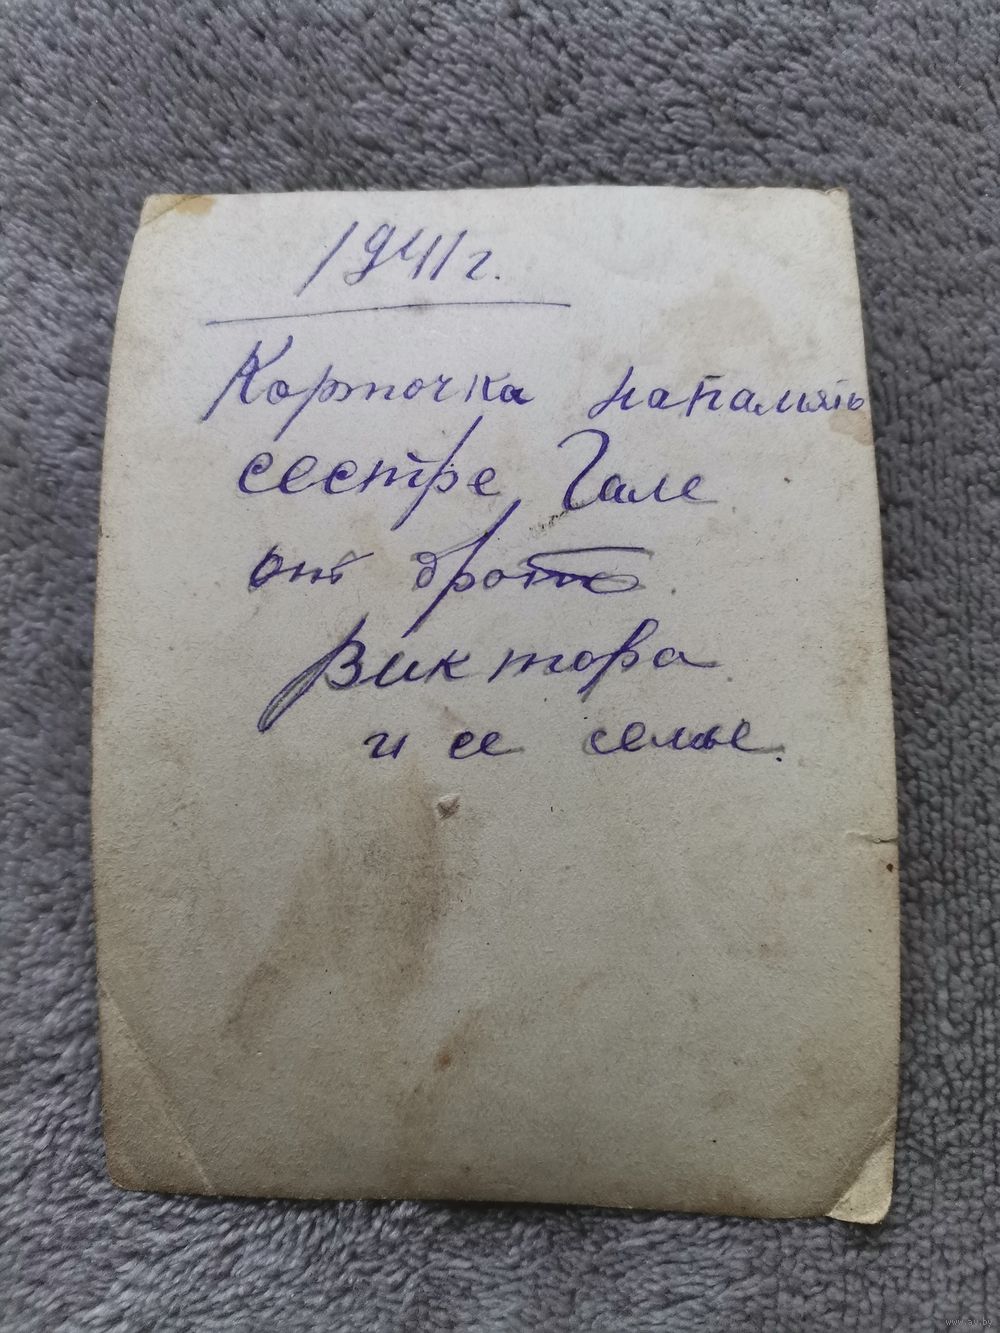 1941 г.
Карточка напамять
сестре Гале
от брата
Виктора
и ее семье.
www.ay.by